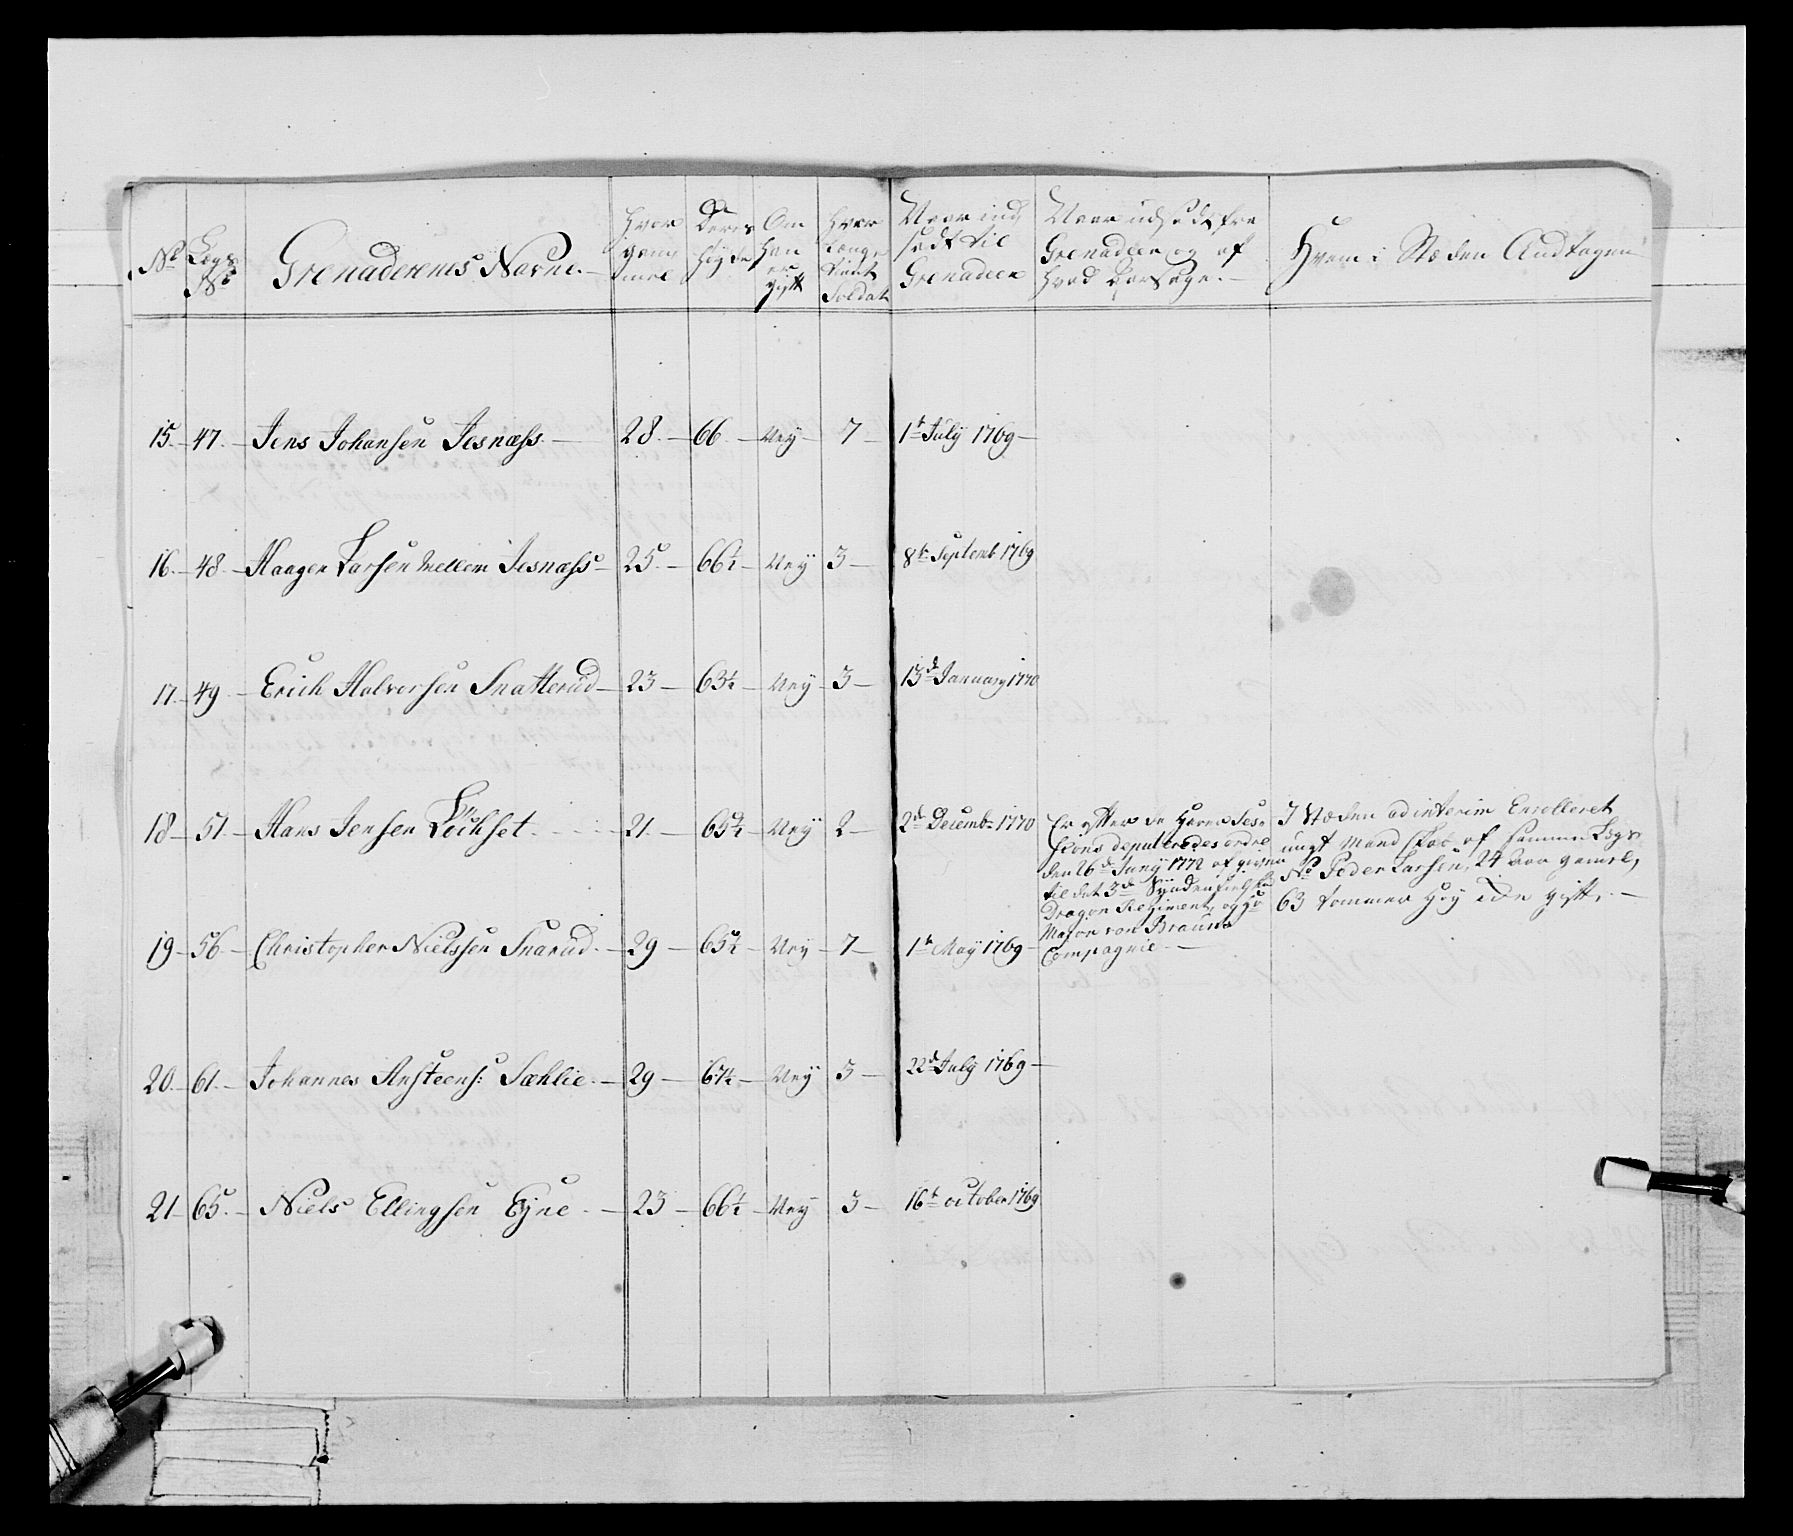 No
Legs
No
Grenaderenes Navne.
Hvor
gam̄
mel
Deres
Høyde
Om
han
er
gift
Hvor
længe
tient
Soldat
Naar ind
sadt til
Grenadeer
Naar udsadt fra
Grenadeer og af
hvad Aarsage.
Hvem i Stæden Andtagen
15. 47. Jens Johansen Jesnæss 28. 66. Ney 7 1t July 1769
16. 48. Haagen Larsen Mellem Jesnæss 25. 66½ Ney 3 8t Septemb 1769
17. 49. Erich Halvorsen Snatterud 23 63½ Ney 3 13de January 1770
18 51. Hans Jensen Löchset 21. 65¾ Ney 2 2de Decembr 1770
Er efter de Herrer Ses-
sions deputeredes ordre
den 26de Juny 1772 afgiven
til det 3de Syndenfieldske
Dragon Regiment, og Hr
Major von Brauns
Compagnie.
I Stæden ad interim Enrolleret
ungt Mandskab af samme Legs
No Peder Larsen, 24 aar gamel,
63 tommer høy icke gift.
19 56. Christopher Nielssen Snarud. 29 65½ Ney 7 1t May 1769
20. 61. Johannes Ansteens: Sæhlie. 29 67½ Ney 5 22de July 1769
21 65. Niels Ellingsen Eyne 23 66½ Ney 3 16t october 1769